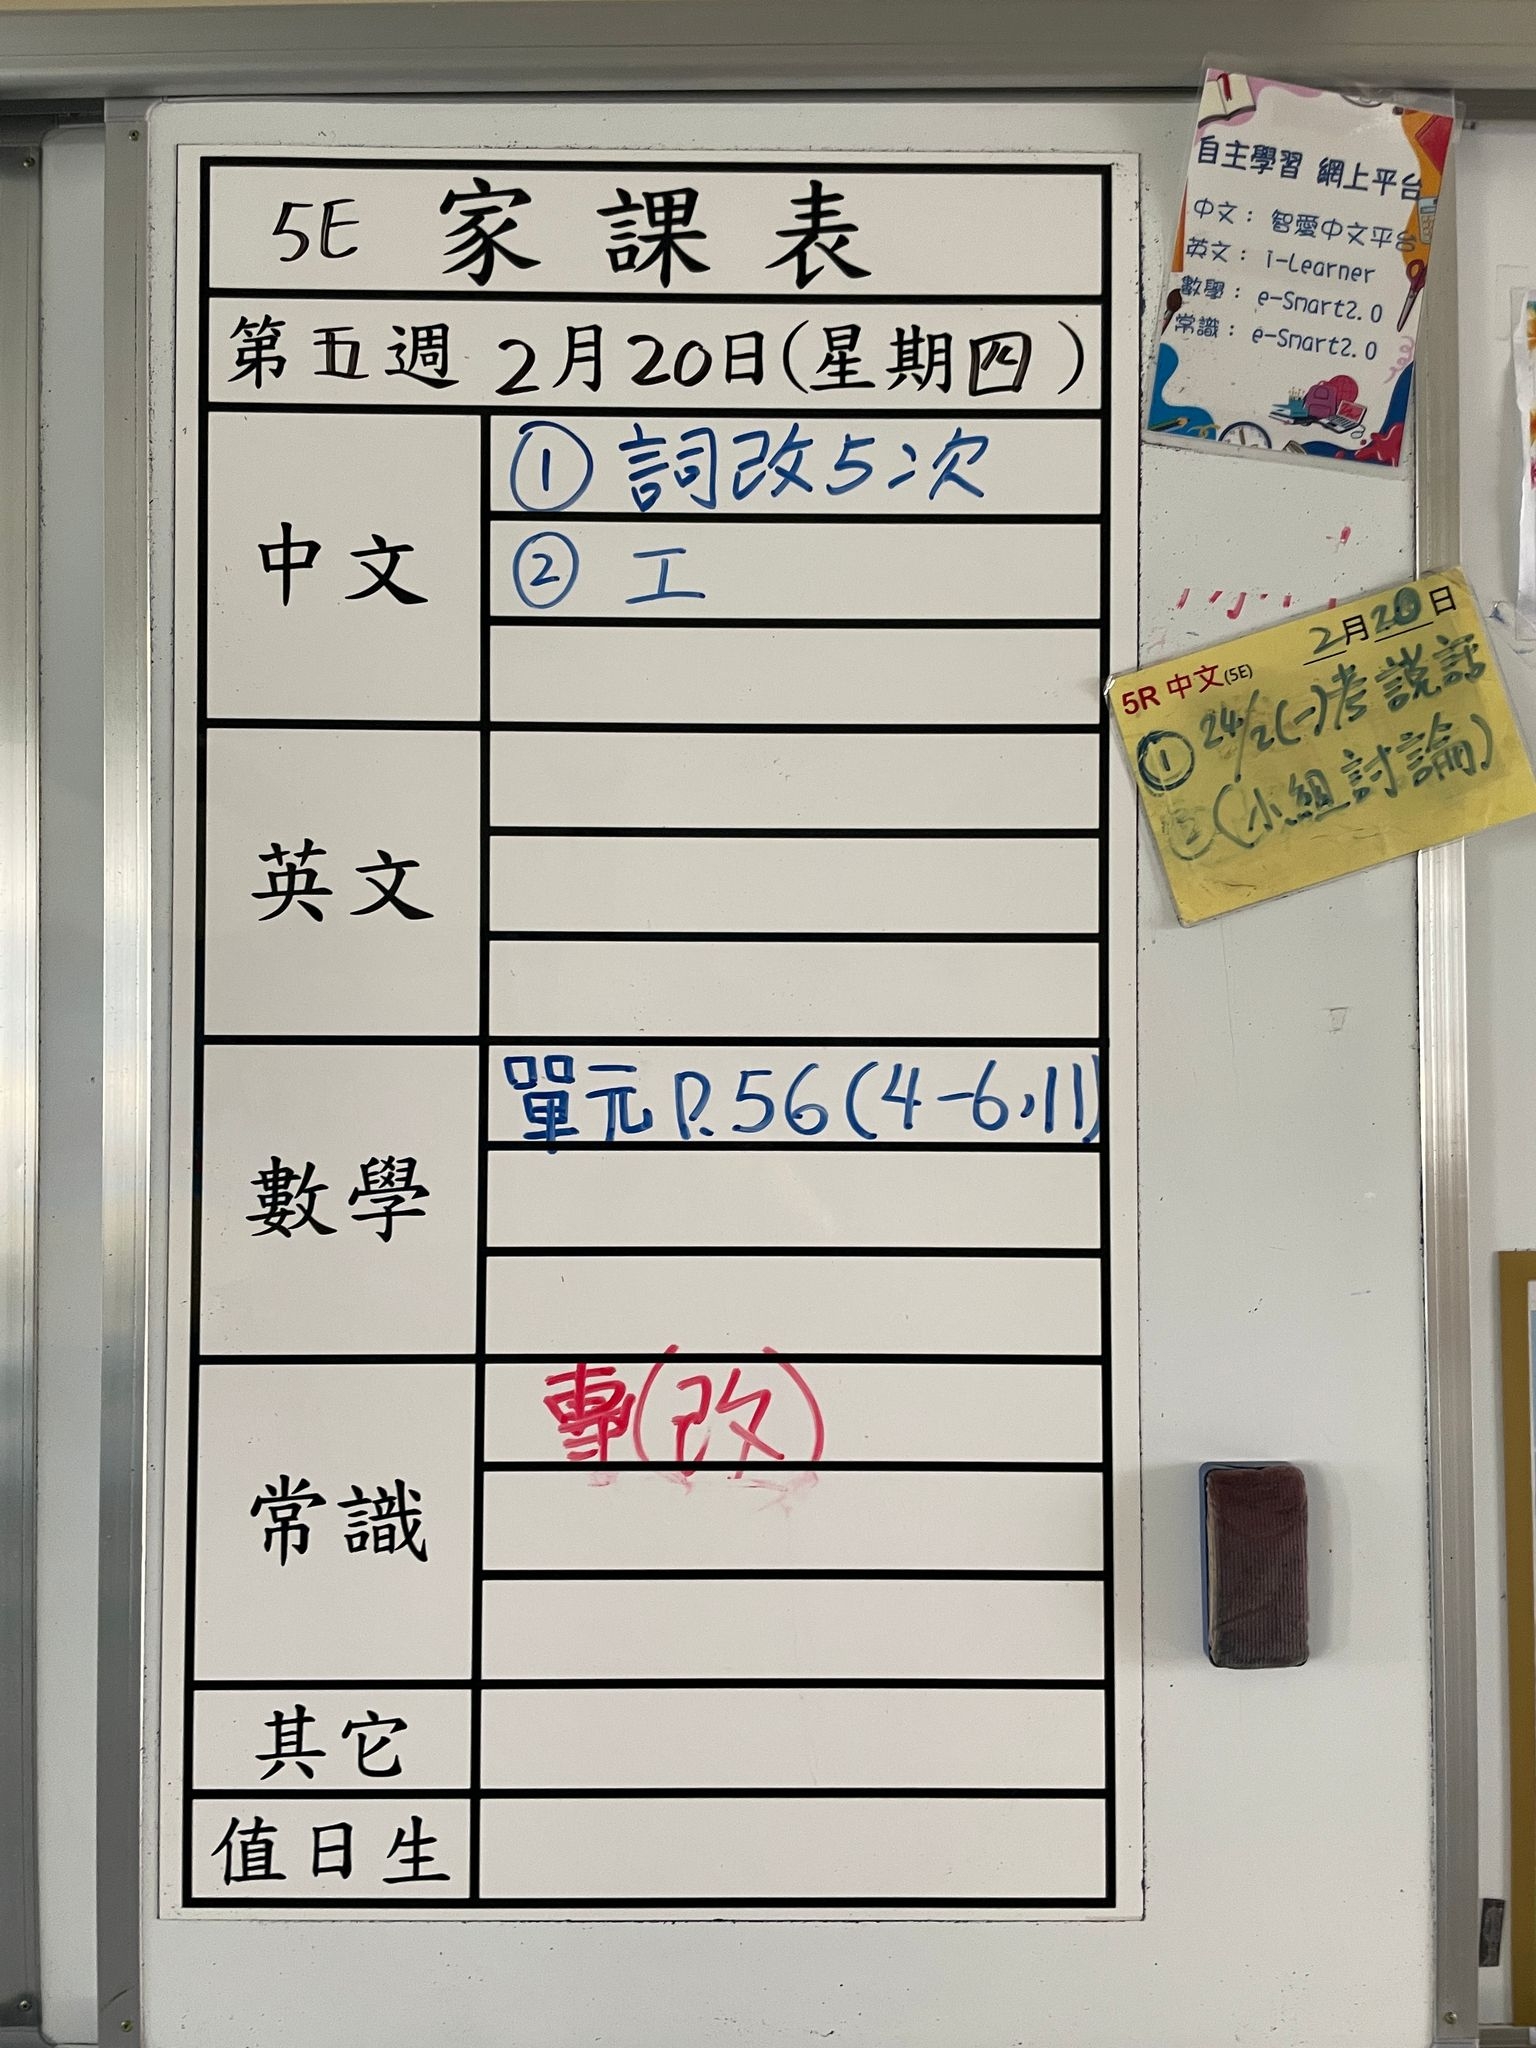 5E 家課表
第五週 2月20日(星期四)
中文
① 詞改5次
② 工
英文
數學
單元 P.56(4-6,11)
常識
專(改)
其它
值日生
自主學習 網上平台
中文：智愛中文平台
英文：i-Learner
數學：e-Smart2.0
常識：e-Smart2.0
2月20日
5R 中文(5E)
① 24/2(一)考說話
②(小組討論)